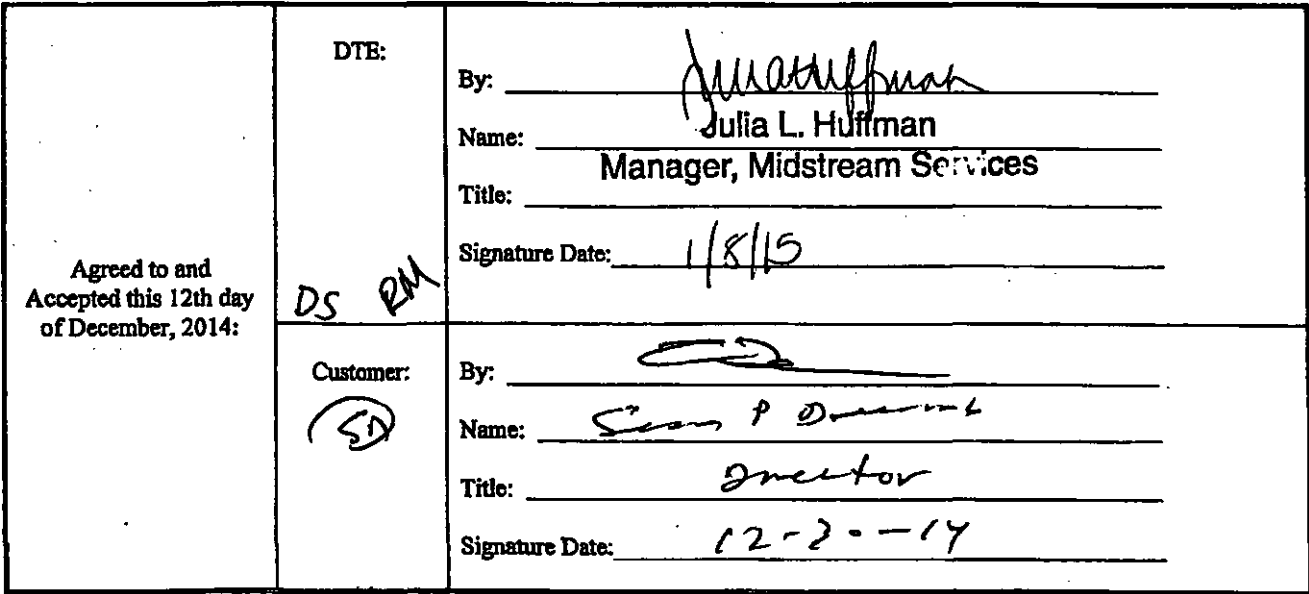 Agreed to and
Accepted this 12th day
of December, 2014:
DTE:
DS RM
By:
Name: Julia L. Huffman
Manager, Midstream Services
Title:
Signature Date: 1/8/15
Customer:
SD
By:
Name: Sean P
Title: Director
Signature Date: 12-30-14